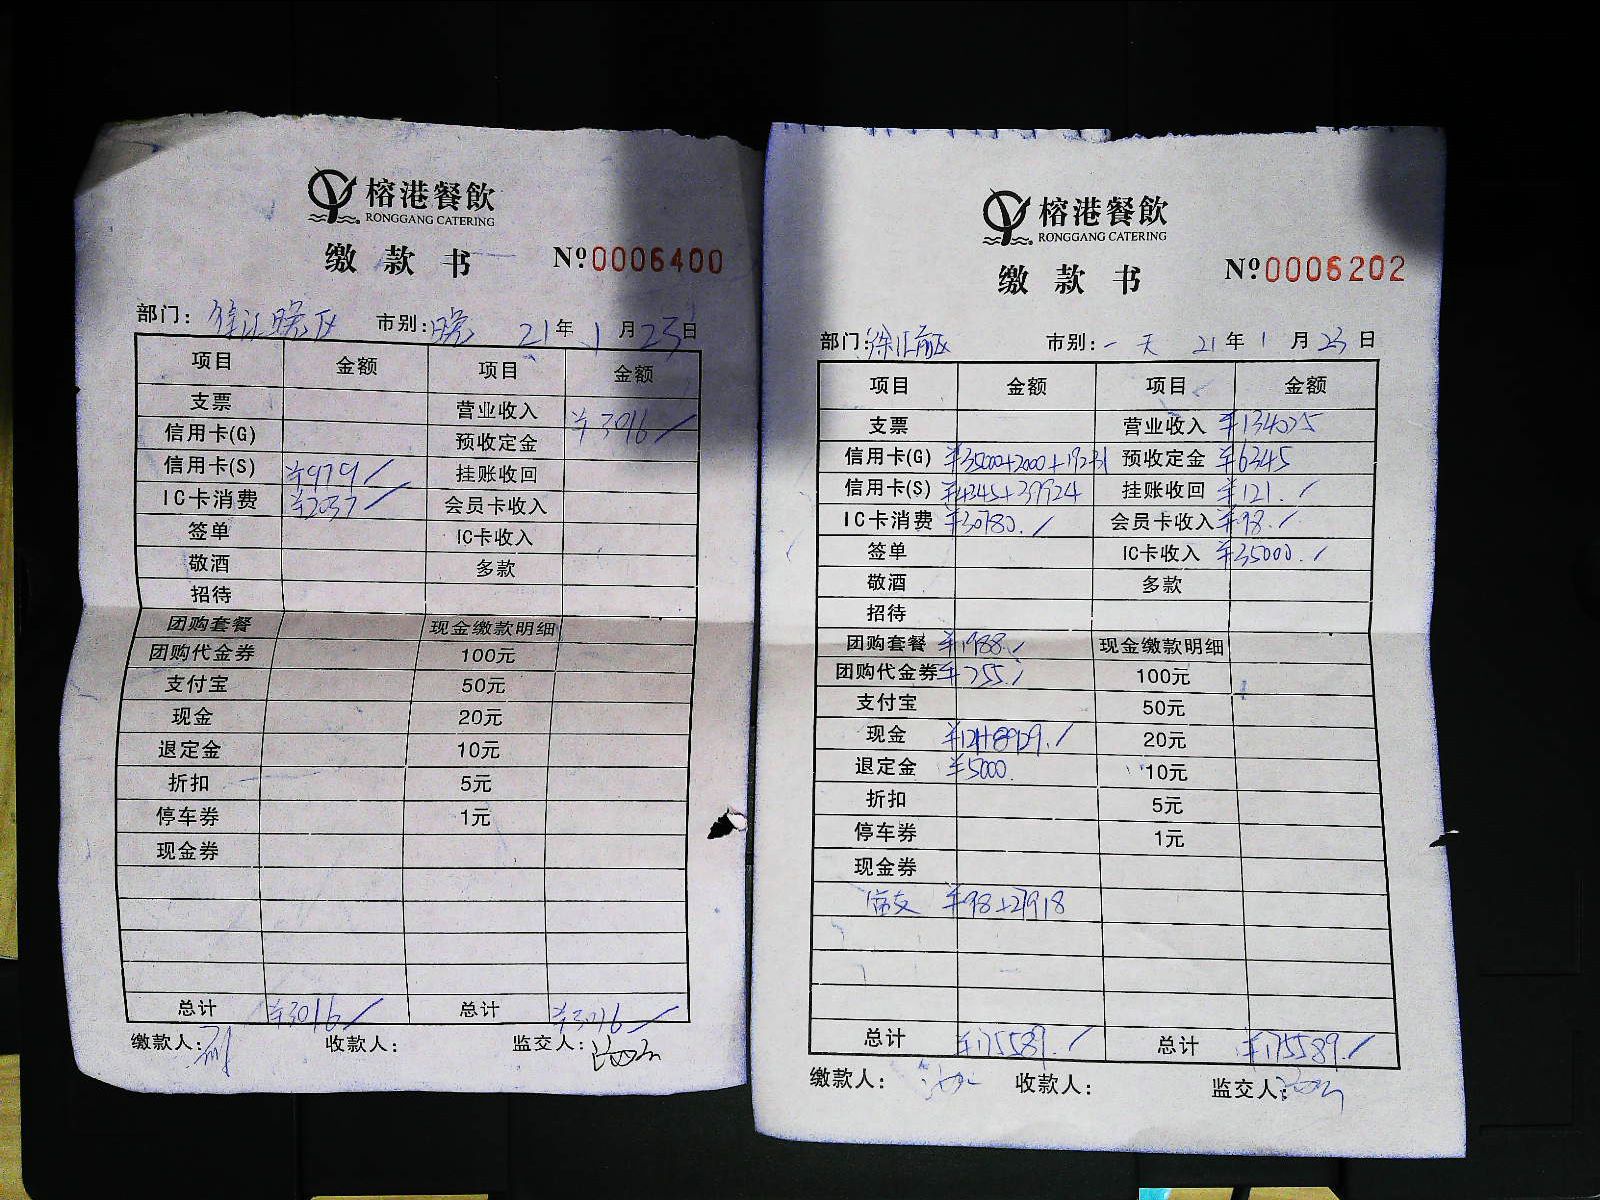 榕港餐飲
RONGGANG CATERING
缴款书 Nº0006400
部门: 市别:晚 21年1月23日
项目 金额 项目 金额
支票 营业收入 ¥3016
信用卡(G) 预收定金
信用卡(S) ¥979 挂账收回
IC卡消费 ¥2037 会员卡收入
签单 IC卡收入
敬酒 多款
招待
团购套餐 现金缴款明细
团购代金券 100元
支付宝 50元
现金 20元
退定金 10元
折扣 5元
停车券 1元
现金券
总计 ¥3016 总计 ¥3016
缴款人: 收款人: 监交人:
榕港餐飲
RONGGANG CATERING
缴款书 Nº0006202
部门:徐汇 市别:一天 21年1月23日
项目 金额 项目 金额
支票 营业收入 ¥134025
信用卡(G) ¥35000+2000+19231 预收定金 ¥6345
信用卡(S) ¥4345+39924 挂账收回 ¥121.
IC卡消费 ¥30780. 会员卡收入 ¥98.
签单 IC卡收入 ¥35000.
敬酒 多款
招待
团购套餐 ¥1988. 现金缴款明细
团购代金券 ¥255. 100元
支付宝 50元
现金 20元
退定金 ¥5000. 10元
折扣 5元
停车券 1元
现金券
¥98+27918
总计 ¥175589. 总计 ¥175589.
缴款人: 收款人: 监交人: